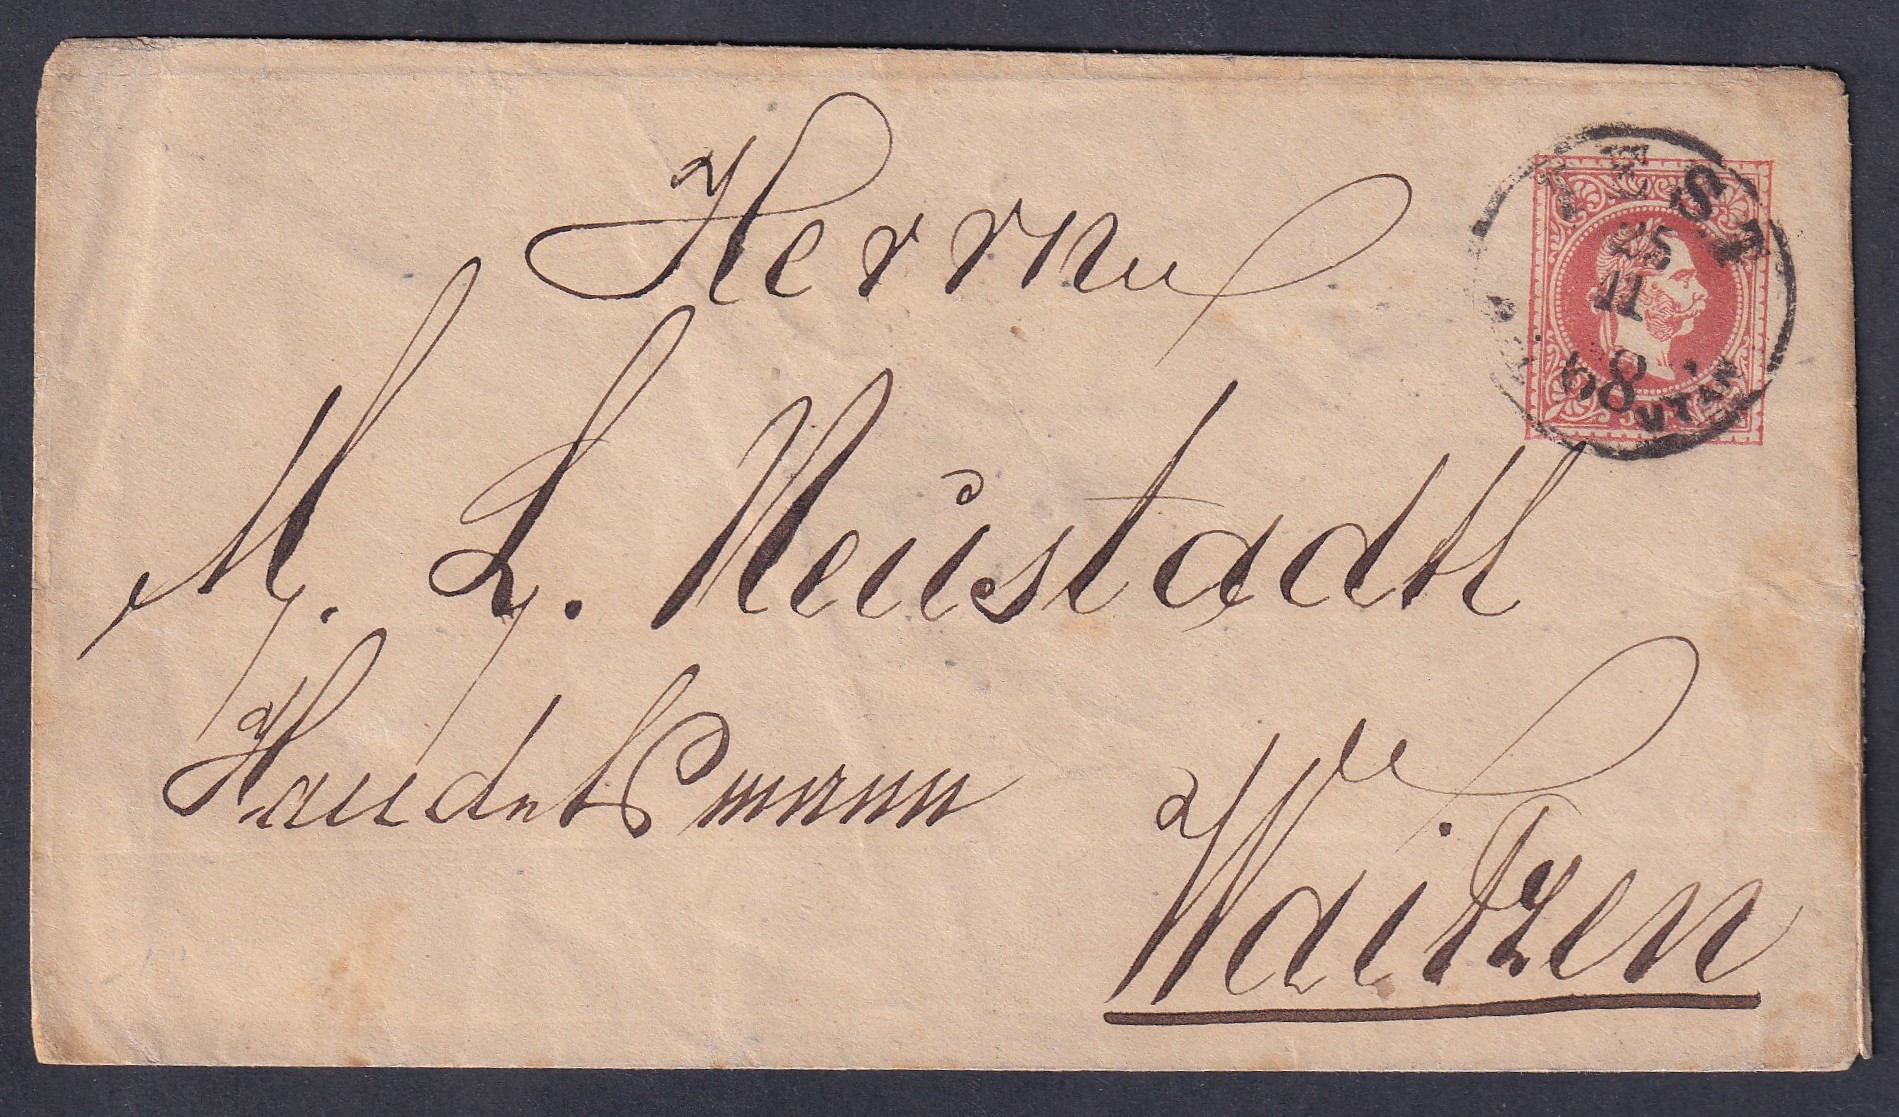 Herrn
PEST
25
11
68
UTÁN
M. L. Neustadtl
Handelsmann
Waitzen